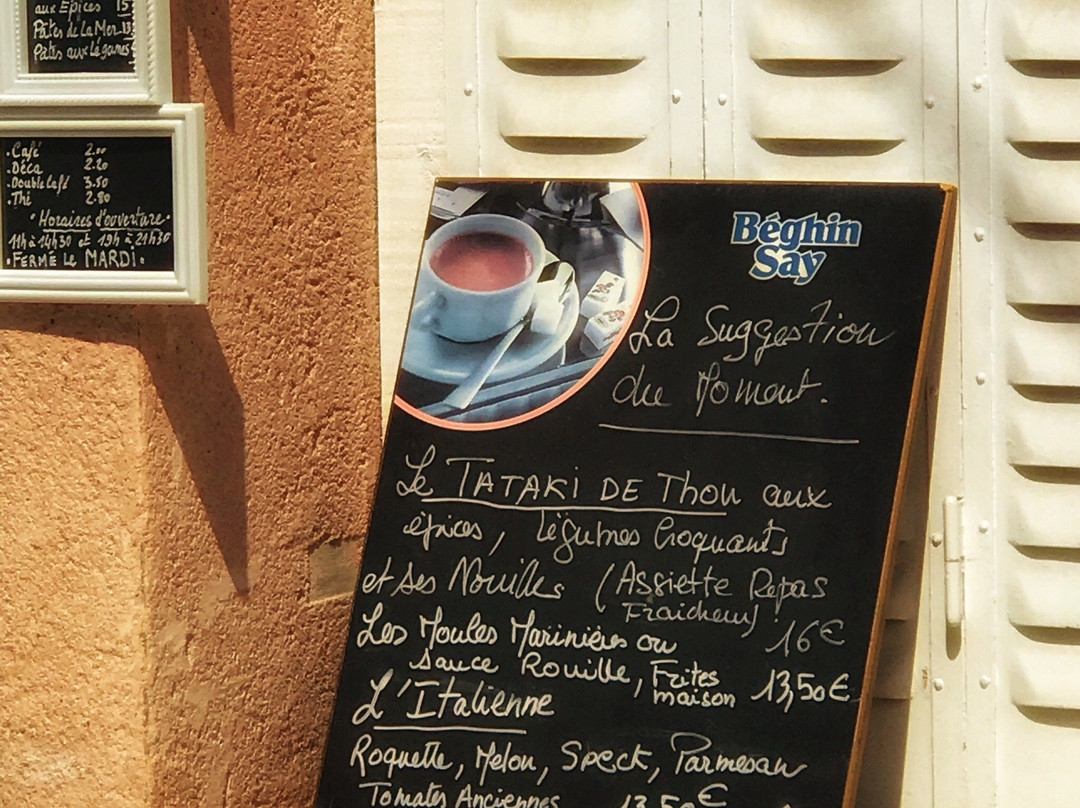 aux Epices 15
Pâtes de La Mer 13
Pâtes aux Légumes
• Café 2.00
• Déca 2.20
• Double Café 3.50
• Thé 2.80
• Horaires d'ouverture •
11h à 14h30 et 19h à 21h30
• FERMÉ Le MARDI •
Béghin
Say
La Suggestion
du Moment.
Le TATAKI DE Thon aux
épices, Légumes Croquants
et ses Nouilles (Assiette Repas
Fraicheur) 16€
Les Moules Marinières ou
sauce Rouille, Frites
maison 13,50€
L'Italienne
Roquette, Melon, Speck, Parmesan
Tomates Anciennes 13,50€